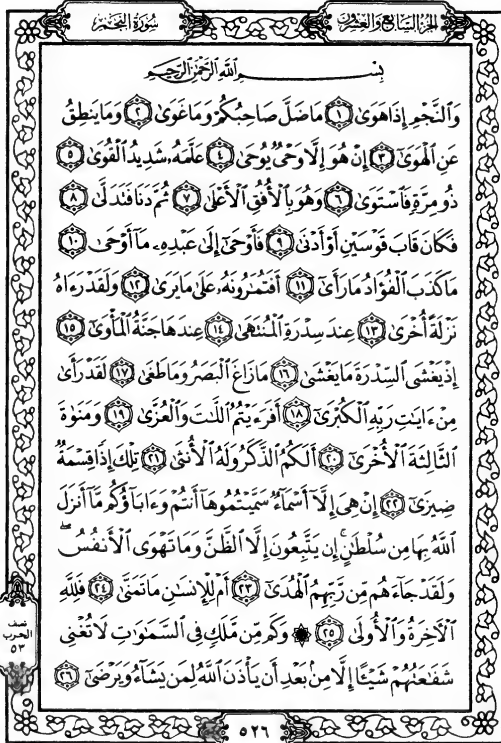 الجزء السابع والعشرون
سورة النجم
بِسْمِ ٱللَّهِ ٱلرَّحْمَٰنِ ٱلرَّحِيمِ
وَٱلنَّجْمِ إِذَا هَوَىٰ ١ مَا ضَلَّ صَاحِبُكُمْ وَمَا غَوَىٰ ٢ وَمَا يَنطِقُ
عَنِ ٱلْهَوَىٰٓ ٣ إِنْ هُوَ إِلَّا وَحْىٌ يُوحَىٰ ٤ عَلَّمَهُۥ شَدِيدُ ٱلْقُوَىٰ ٥
ذُو مِرَّةٍ فَٱسْتَوَىٰ ٦ وَهُوَ بِٱلْأُفُقِ ٱلْأَعْلَىٰ ٧ ثُمَّ دَنَا فَتَدَلَّىٰ ٨
فَكَانَ قَابَ قَوْسَيْنِ أَوْ أَدْنَىٰ ٩ فَأَوْحَىٰٓ إِلَىٰ عَبْدِهِۦ مَآ أَوْحَىٰ ١٠
مَا كَذَبَ ٱلْفُؤَادُ مَا رَأَىٰٓ ١١ أَفَتُمَٰرُونَهُۥ عَلَىٰ مَا يَرَىٰ ١٢ وَلَقَدْ رَءَاهُ
نَزْلَةً أُخْرَىٰ ١٣ عِندَ سِدْرَةِ ٱلْمُنتَهَىٰ ١٤ عِندَهَا جَنَّةُ ٱلْمَأْوَىٰٓ ١٥
إِذْ يَغْشَى ٱلسِّدْرَةَ مَا يَغْشَىٰ ١٦ مَا زَاغَ ٱلْبَصَرُ وَمَا طَغَىٰ ١٧ لَقَدْ رَأَىٰ
مِنْ ءَايَٰتِ رَبِّهِ ٱلْكُبْرَىٰٓ ١٨ أَفَرَءَيْتُمُ ٱللَّٰتَ وَٱلْعُزَّىٰ ١٩ وَمَنَوٰةَ
ٱلثَّالِثَةَ ٱلْأُخْرَىٰٓ ٢٠ أَلَكُمُ ٱلذَّكَرُ وَلَهُ ٱلْأُنثَىٰ ٢١ تِلْكَ إِذًا قِسْمَةٌ
ضِيزَىٰٓ ٢٢ إِنْ هِىَ إِلَّآ أَسْمَآءٌ سَمَّيْتُمُوهَآ أَنتُمْ وَءَابَآؤُكُم مَّآ أَنزَلَ
ٱللَّهُ بِهَا مِن سُلْطَٰنٍ ۚ إِن يَتَّبِعُونَ إِلَّا ٱلظَّنَّ وَمَا تَهْوَى ٱلْأَنفُسُ ۖ
وَلَقَدْ جَآءَهُم مِّن رَّبِّهِمُ ٱلْهُدَىٰٓ ٢٣ أَمْ لِلْإِنسَٰنِ مَا تَمَنَّىٰ ٢٤ فَلِلَّهِ
ٱلْءَاخِرَةُ وَٱلْأُولَىٰ ٢٥ ۞ وَكَم مِّن مَّلَكٍ فِى ٱلسَّمَٰوَٰتِ لَا تُغْنِى
شَفَٰعَتُهُمْ شَيْـًٔا إِلَّا مِنۢ بَعْدِ أَن يَأْذَنَ ٱللَّهُ لِمَن يَشَآءُ وَيَرْضَىٰٓ ٢٦
نصف
الحزب
٥٣
٥٢٦